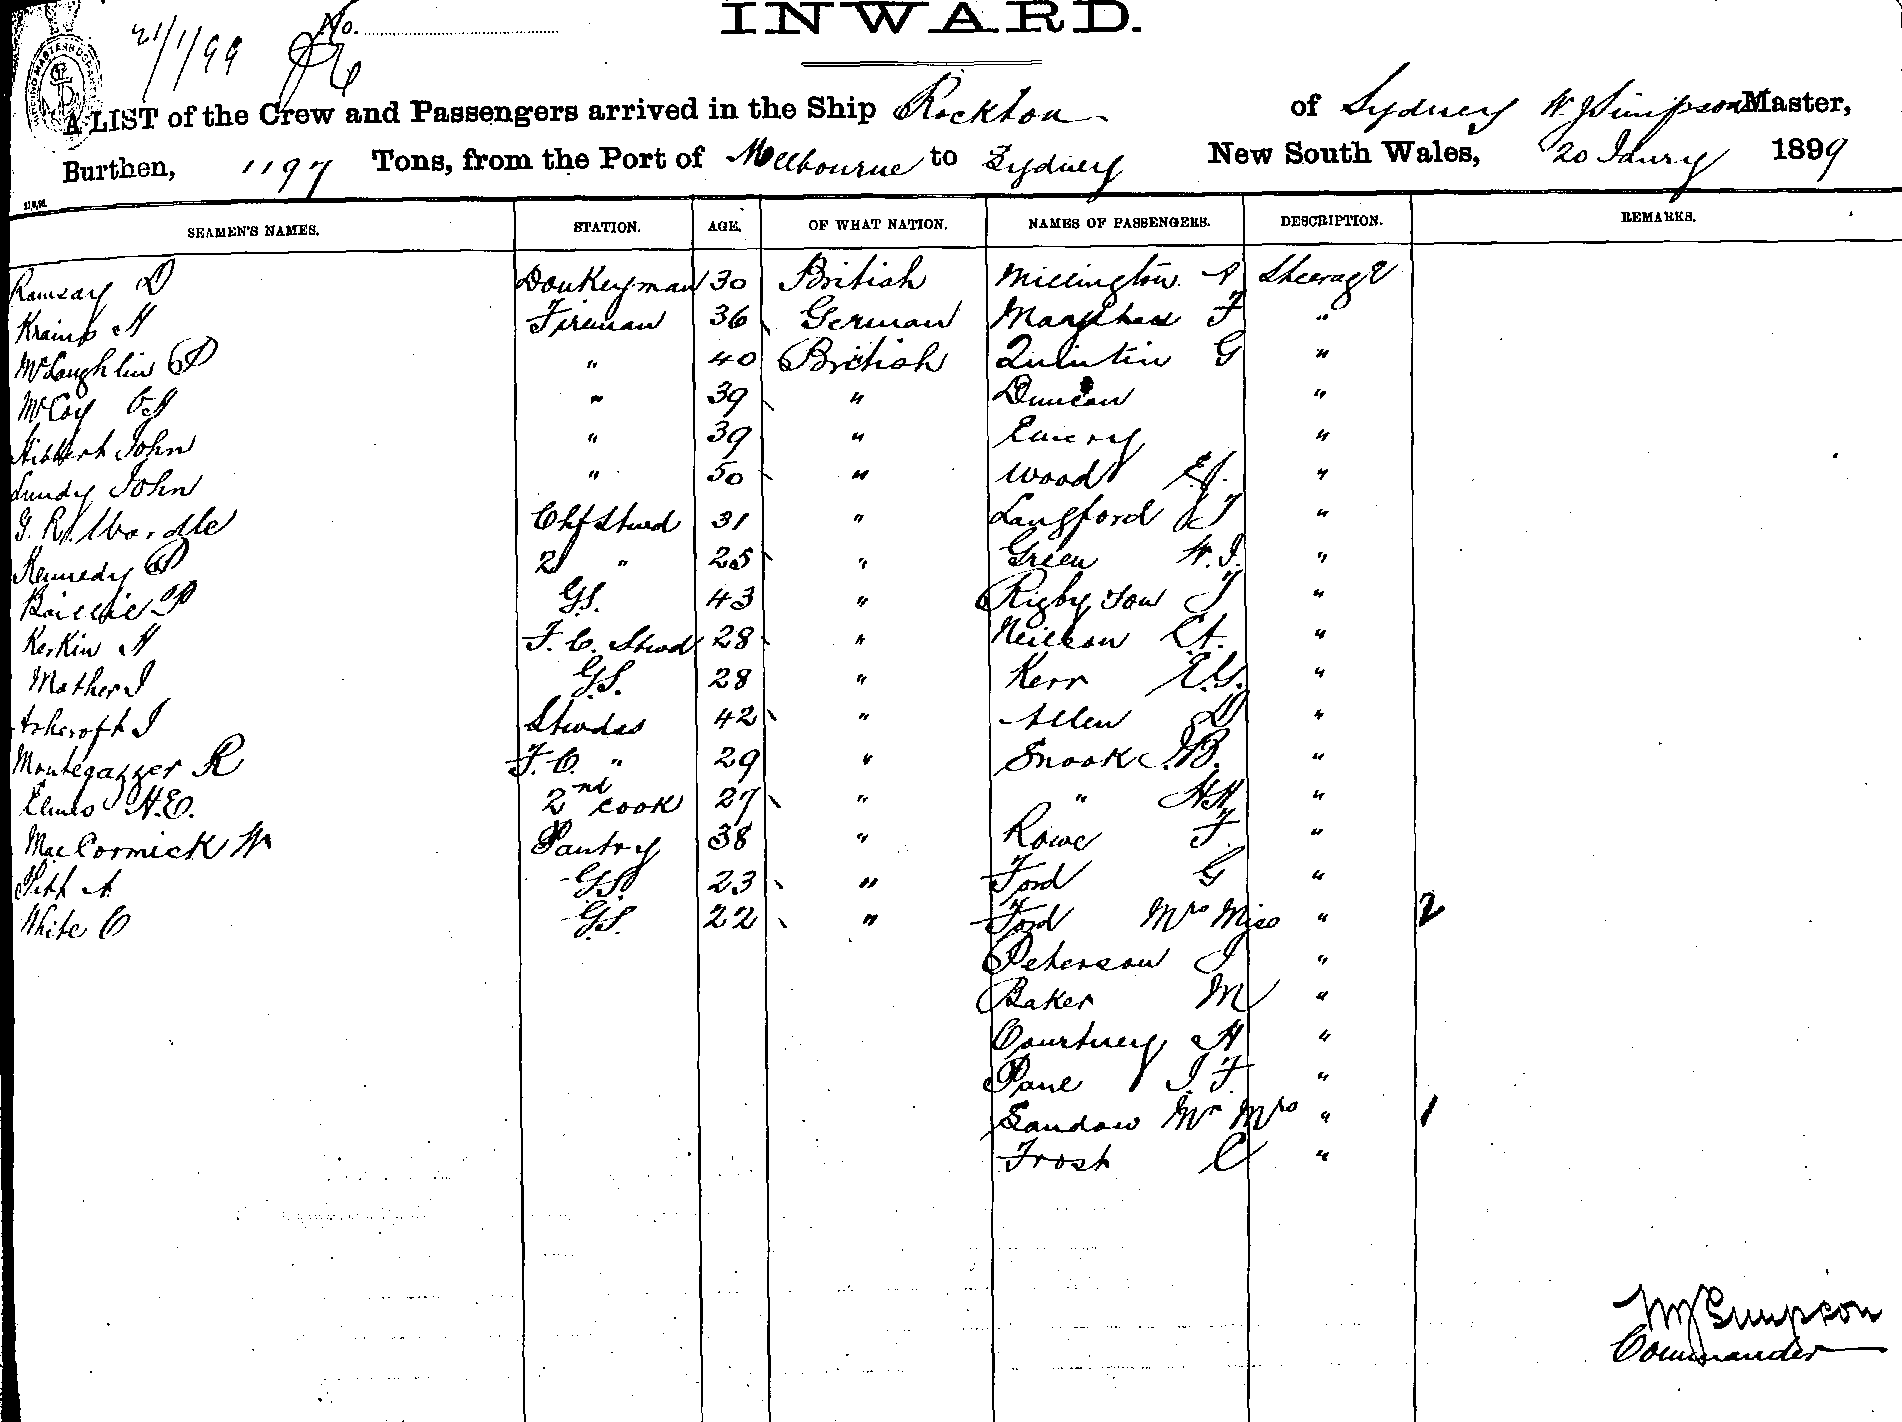 21/1/99 No.
INWARD.
A LIST of the Crew and Passengers arrived in the Ship Rockton of Sydney W J Simpson Master,
Burthen, 1197 Tons, from the Port of Melbourne to Sydney New South Wales, 20 Janry 1899
SEAMEN'S NAMES. STATION. AGE. OF WHAT NATION. NAMES OF PASSENGERS. DESCRIPTION. REMARKS.
Ramsay D Donkeyman 30 British Millington A Steerage
Kramp H Fireman 36 German F "
McLaughlin P " 40 British Quintin G "
McCoy " 39 " Duncan "
Hibbert John " 39 " Emery "
Lundy John " 50 " Wood E.J. "
G. R. Wardle Chf Stwd 31 " Langford "
Kennedy P 2 " 25 " Green W. J. "
Baillie P G.S. 43 " Rigby son J "
Kerkin H F. C. Stwd 28 " Neilson "
Mather J G.S. 28 " Kerr E.G. "
Ashcroft J Stwdss 42 " Allen D "
Montegazzer R F. C. " 29 " Snook J.B. "
Elms H.E. 2nd cook 27 " " "
MacCormick W Pantry 38 " Rowe F "
Pitt A G.S. 23 " Ford G "
White C G.S. 22 " Ford Mrs Miss " 2
Peterson J "
Baker M "
Courtney H "
Pane J. F. "
Sandow Mr Mrs " 1
Frost C "
W J Simpson
Commander